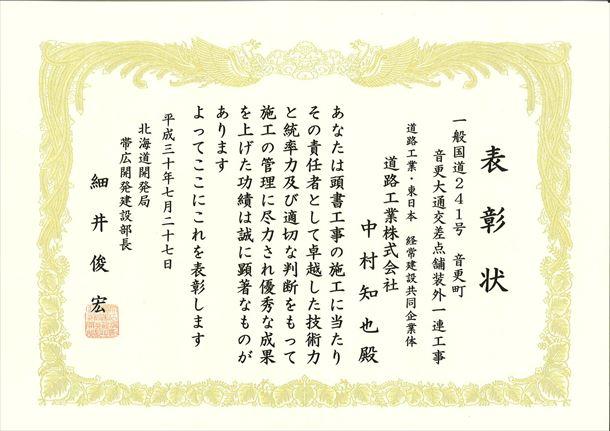 表彰状
一般国道241号 音更町
音更大通交差点舗装外一連工事
道路工業・東日本 経常建設共同企業体
道路工業株式会社
中村知也殿
あなたは頭書工事の施工に当たり
その責任者として卓越した技術力
と統率力及び適切な判断をもって
施工の管理に尽力され優秀な成果
を上げた功績は誠に顕著なものが
あります
よってここにこれを表彰します
平成三十年七月二十七日
北海道開発局
帯広開発建設部長
細井俊宏